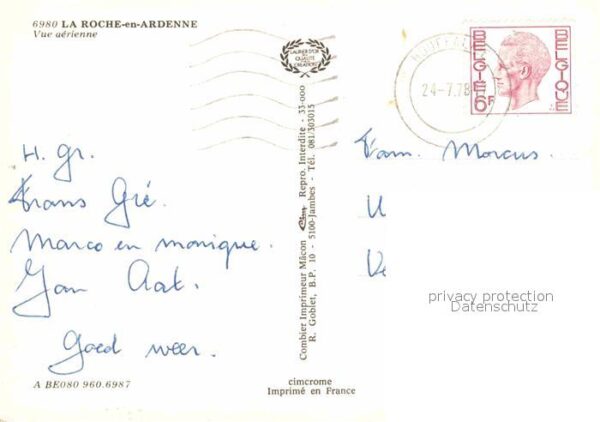 6980 LA ROCHE-en-ARDENNE
Vue aérienne
LAURIER D'OR
DE
QUALITÉ
CRÉATION
24-7.78
BELGIE 6F
BELGIQUE
H. gr.
Frans Gré.
Marco en monique.
Jan Aat.
Goed weer.
Combier Imprimeur Mâcon Repro. Interdite - 33-000
R. Goblet, B.P. 10 - 5100-Jambes - Tél. 081/303015
Fam. Marcus.
privacy protection
Datenschutz
A BE080 960.6987
cimcrome
Imprimé en France